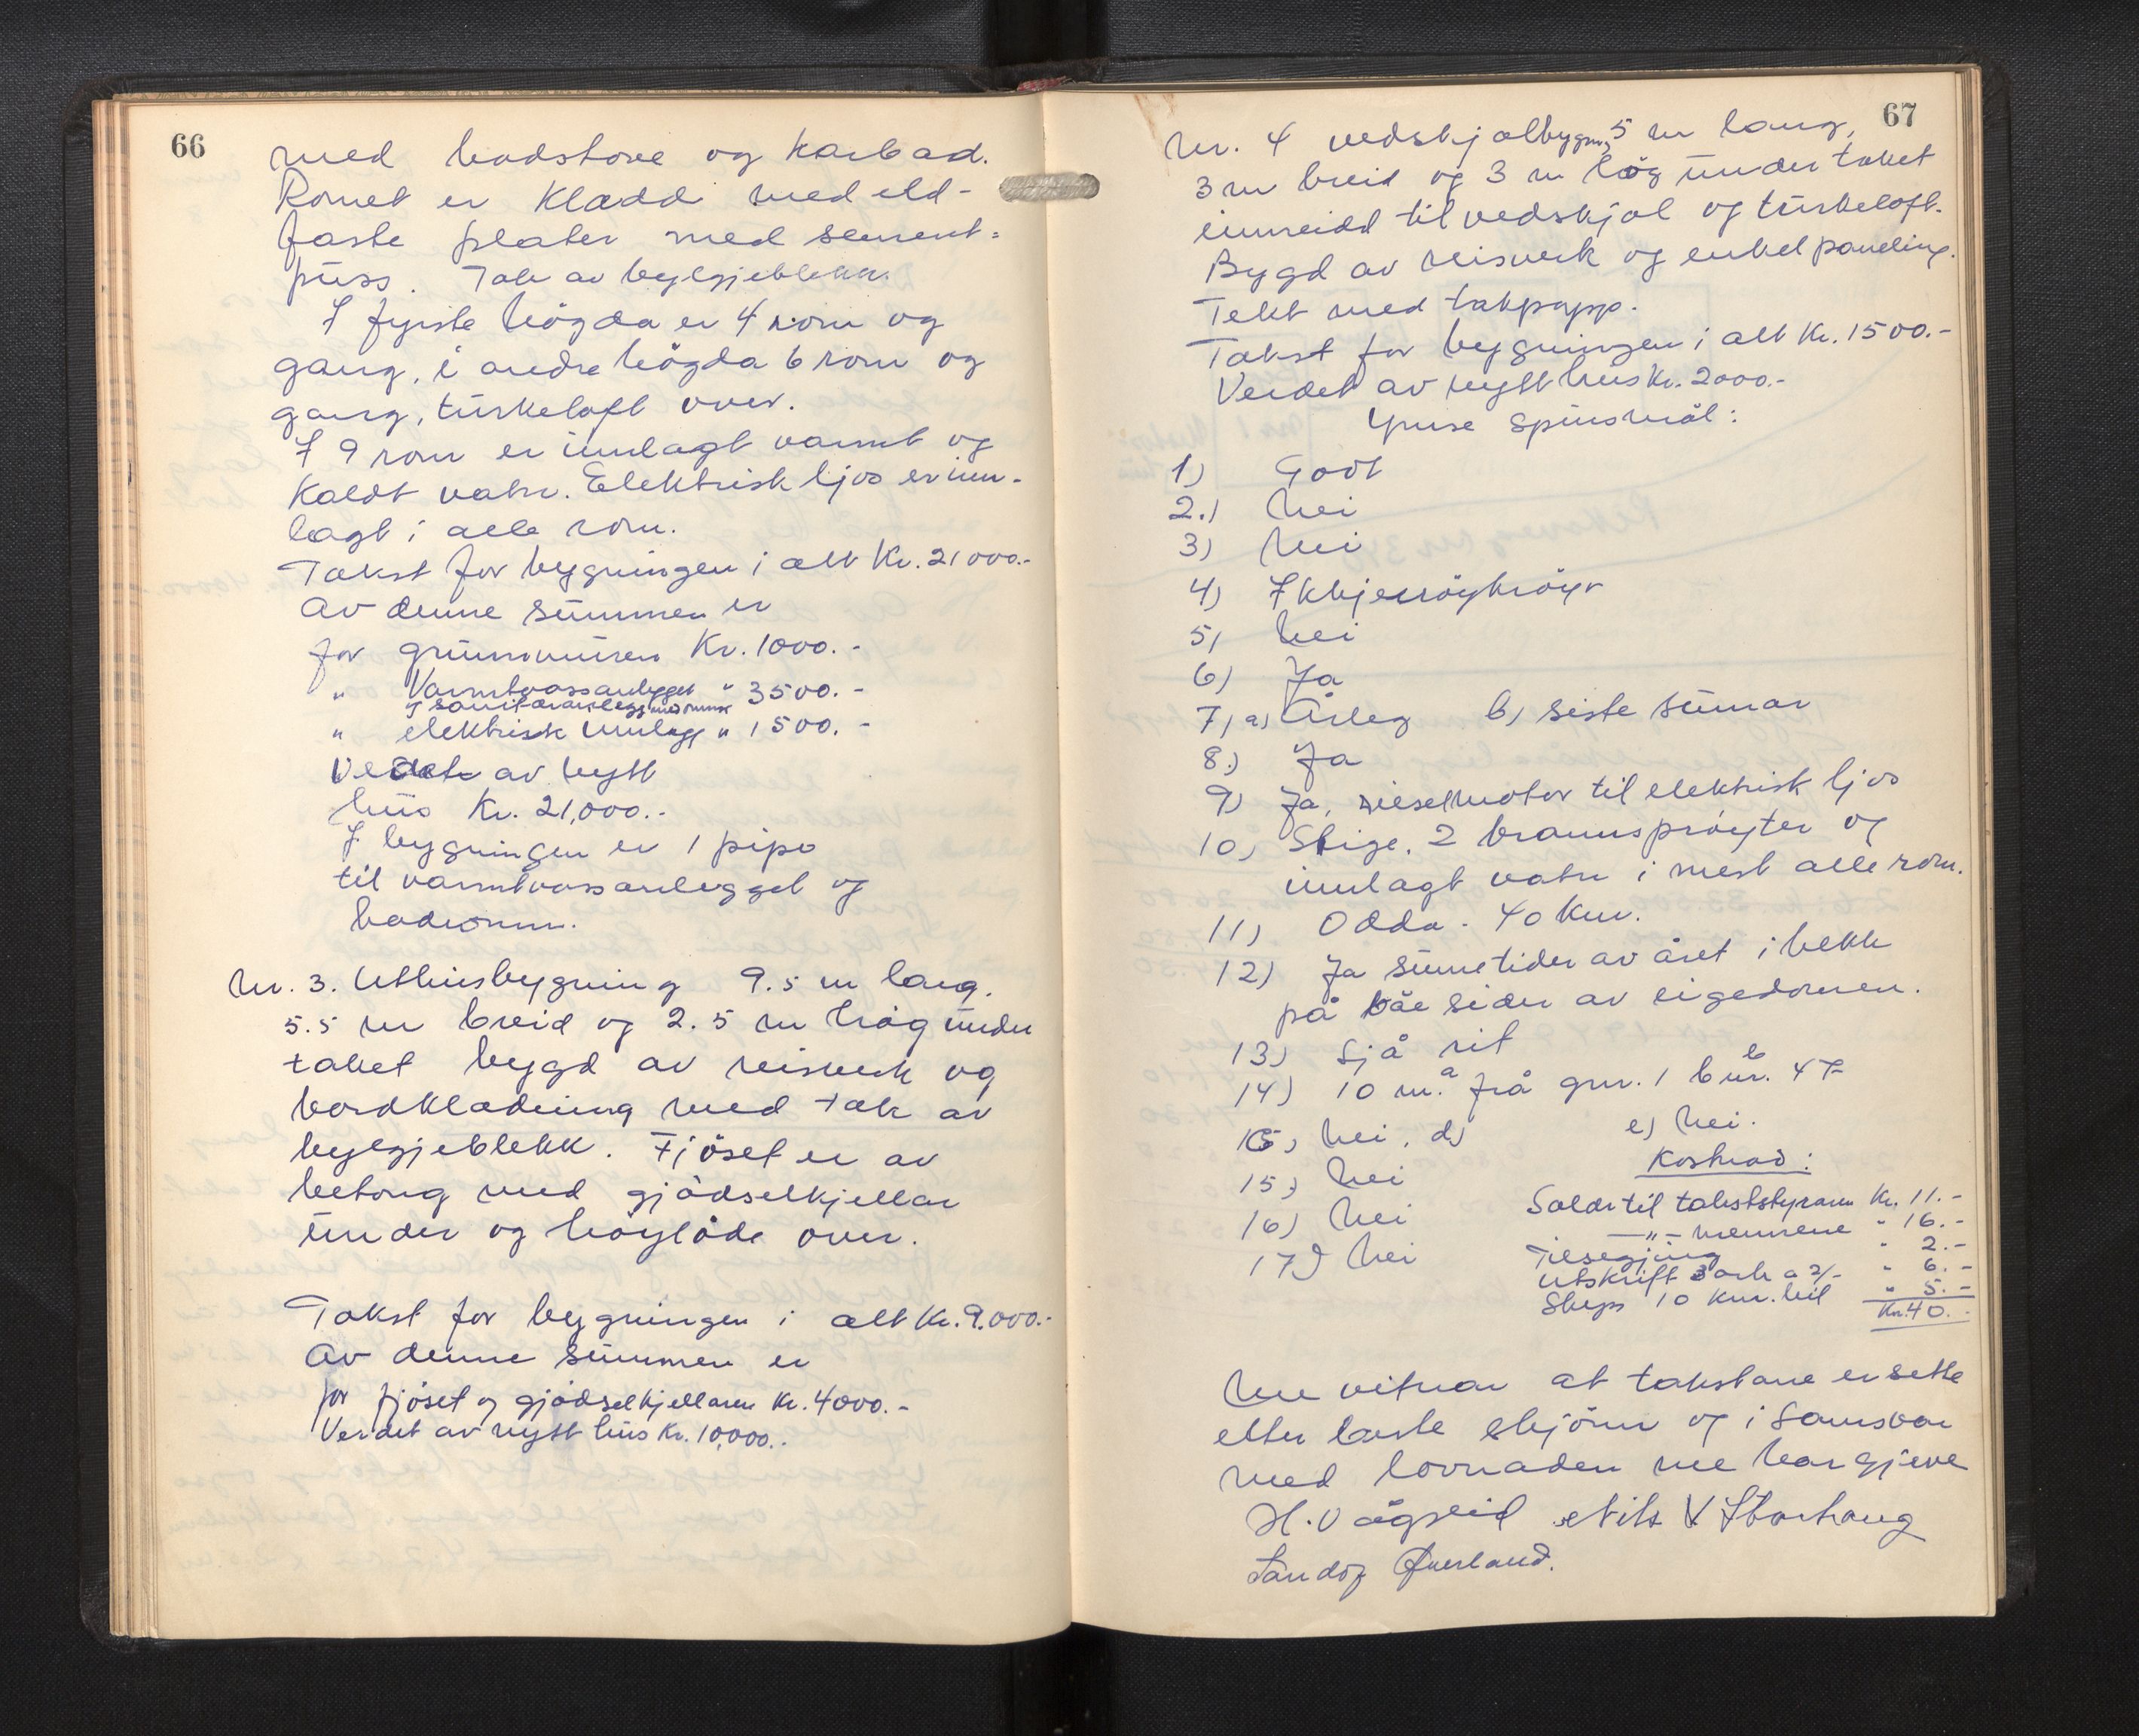 66
med badstove og karbad.
Romet er klædd med eld-
faste plater med sement-
puss. Tak av bylgjeblekk.
I fyrste høgda er 4 rom og
gang, i andre høgda 6 rom og
gang, turkeloft over.
I 9 rom er innlagt varmt og
kaldt vatn. Elektrisk ljos er inn-
lagt i alle rom.
Takst for bygningen i alt Kr. 21000.-
Av denne summen er
for grunnmuren Kr. 1000.-
" Varmtvassanlegget " 3500.-
og sanitæranlegg med
" elektrisk innlegg " 1500.-
Verdet av nytt
hus Kr. 21,000.-
I bygningen er 1 pipe
til varmtvassanlegget og
badeomn.
Nr. 3. Uthusbygning 9.5 m lang.
5.5 m breid og 2.5 m høg under
taket bygd av reisverk og
bordklædning med tak av
bylgjeblekk. Fjöset er av
betong med gjödselkjellar
under og höylåde over.
Takst for bygningen i alt Kr. 9.000.-
Av denne summen er
for fjöset og gjödselkjellaren Kr. 4000.-
Verdet av nytt hus Kr. 10,000.-
67
Nr. 4 vedskjolbygn, 5 m lang,
3 m breid og 3 m høg under taket
innreidd til vedskjol og turkeloft.
Bygd av reisverk og enkel paneling.
Tekt med takpapp.
Takst for bygningen i alt Kr. 1500.-
Verdet av nytt hus Kr. 2000.-
Ymse spursmål:
1) Godt
2.) Nei
3) Nei
4) I
5) Nei
6) Ja
7) a) Årleg b) siste sumar
8.) Ja
9) Ja, dieselmotor til elektrisk ljos
10) Stige. 2 brannspröyter og
innlagt vatn i mest alle rom.
11) Odda - 40 km.
12) Ja sume tider av året i bekk
på båe sider av eigedomen.
13) Sjå rit
14) 10 m. a frå gnr. 1 bnr. 4 b
c) Nei. d) e) Nei.
15) Nei
16) Nei
17) Nei
Kostnad:
Saldr til takststyraren Kr. 11.-
—"— mennene " 16.-
Tilsegjing " 2.-
Utskrift 3 ark a 2/- " 6.-
Skyss 10 km. bil " 5.-
Kr. 40.-
Me vitnar at takstane er sette
etter beste skjönn og i samsvar
med lovnaden me har gjeve
H. Vågslid Nils V Storhaug
Sandof Øverland.